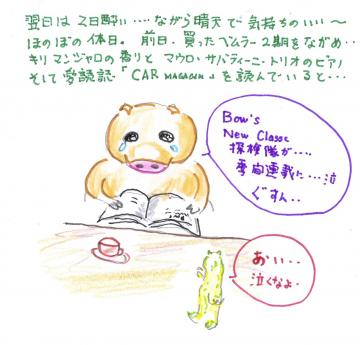 翌日は 2日酔い‥‥ながら晴天で 気持ちのいい〜
ほのぼの休日。 前日、買ったヘムラー2期をながめ‥
キリマンジャロの香りと マウロ・サバティーニ・トリオのピアノ
そして愛読誌「CAR MAGAZIN」を読んでいると‥‥
Bow's
New Classc
探検隊が‥‥
季刊連載に‥‥泣
ぐすん‥
おい‥
泣くなよ‥